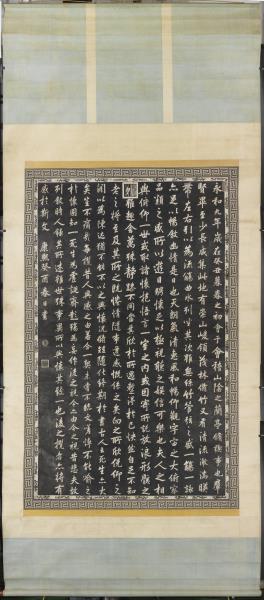 永和九年歲在癸丑暮春之初會于會稽山陰之蘭亭脩禊事也羣
賢畢至少長咸集此地有崇山峻嶺茂林脩竹又有清流激湍暎
帶左右引以為流觴曲水列坐其次雖無絲竹管絃之盛一觴一詠
亦足以暢敘幽情是日也天朗氣清惠風和暢仰觀宇宙之大俯察
品類之盛所以遊目騁懷足以極視聽之娛信可樂也夫人之相
與俯仰一世或取諸懷抱悟言一室之內或因寄所託放浪形骸之
雖趣舍萬殊靜躁不同當其欣於所遇蹔得於己快然自足不知
老之將至及其所之既惓情隨事遷感慨係之矣向之所欣俛仰之
閒以為陳迹猶不能不以之興懷況脩短隨化終期於盡古人云死生亦大
矣豈不痛哉每攬昔人興感之由若合一契未嘗不臨文嗟悼不能喻之
於懷固知一死生為虛誕齊彭殤為妄作後之視今亦由今之視昔悲夫故
列敘時人錄其所述雖世殊事異所以興懷其致一也後之攬者亦將有
感於斯文 康熙癸酉春書